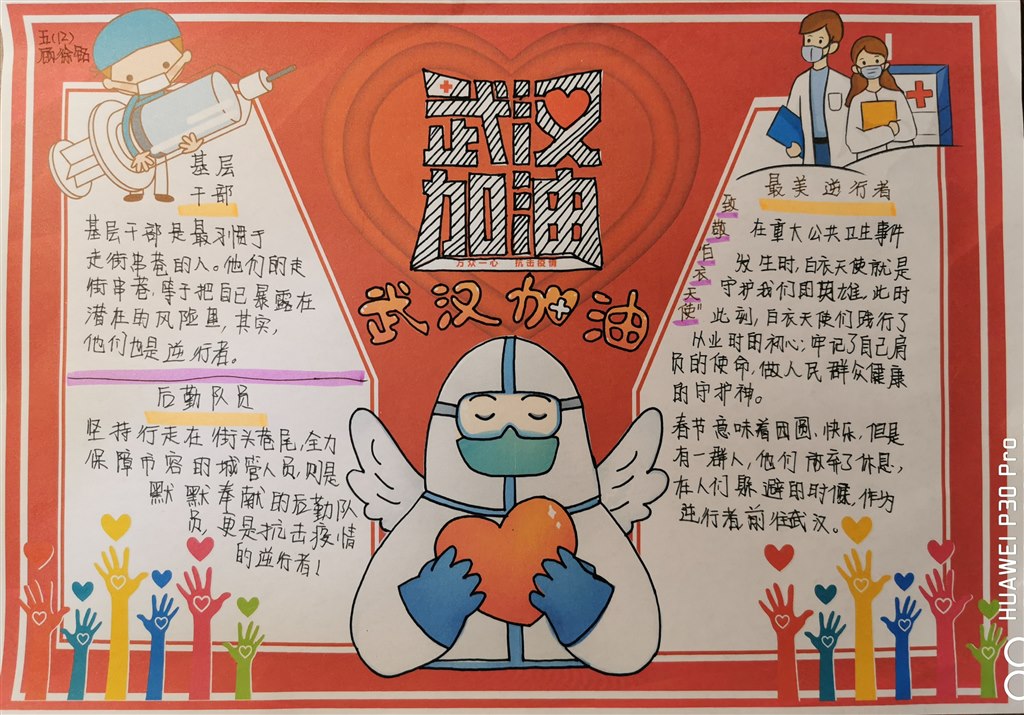 五(12)
武汉
加油
万众一心 抗击疫情
武汉加油
基层
干部
基层干部是最习惯于
走街串巷的人。他们的走
街串巷,等于把自己暴露在
潜在的风险里,其实,
他们也是逆行者。
后勤队员
坚持行走在街头巷尾,全力
保障市容的城管人员,则是
默默奉献的后勤队
员,更是抗击疫情
的逆行者!
最美逆行者
致敬“白衣天使”
在重大公共卫生事件
发生时,白衣天使就是
守护我们的英雄。此时
此刻,白衣天使们践行了
从业时的初心;牢记了自己肩
负的使命,做人民群众健康
的守护神。
春节意味着团圆、快乐,但是
有一群人,他们放弃了休息,
在人们躲避的时候,作为
逆行者前往武汉。
HUAWEI P30 Pro